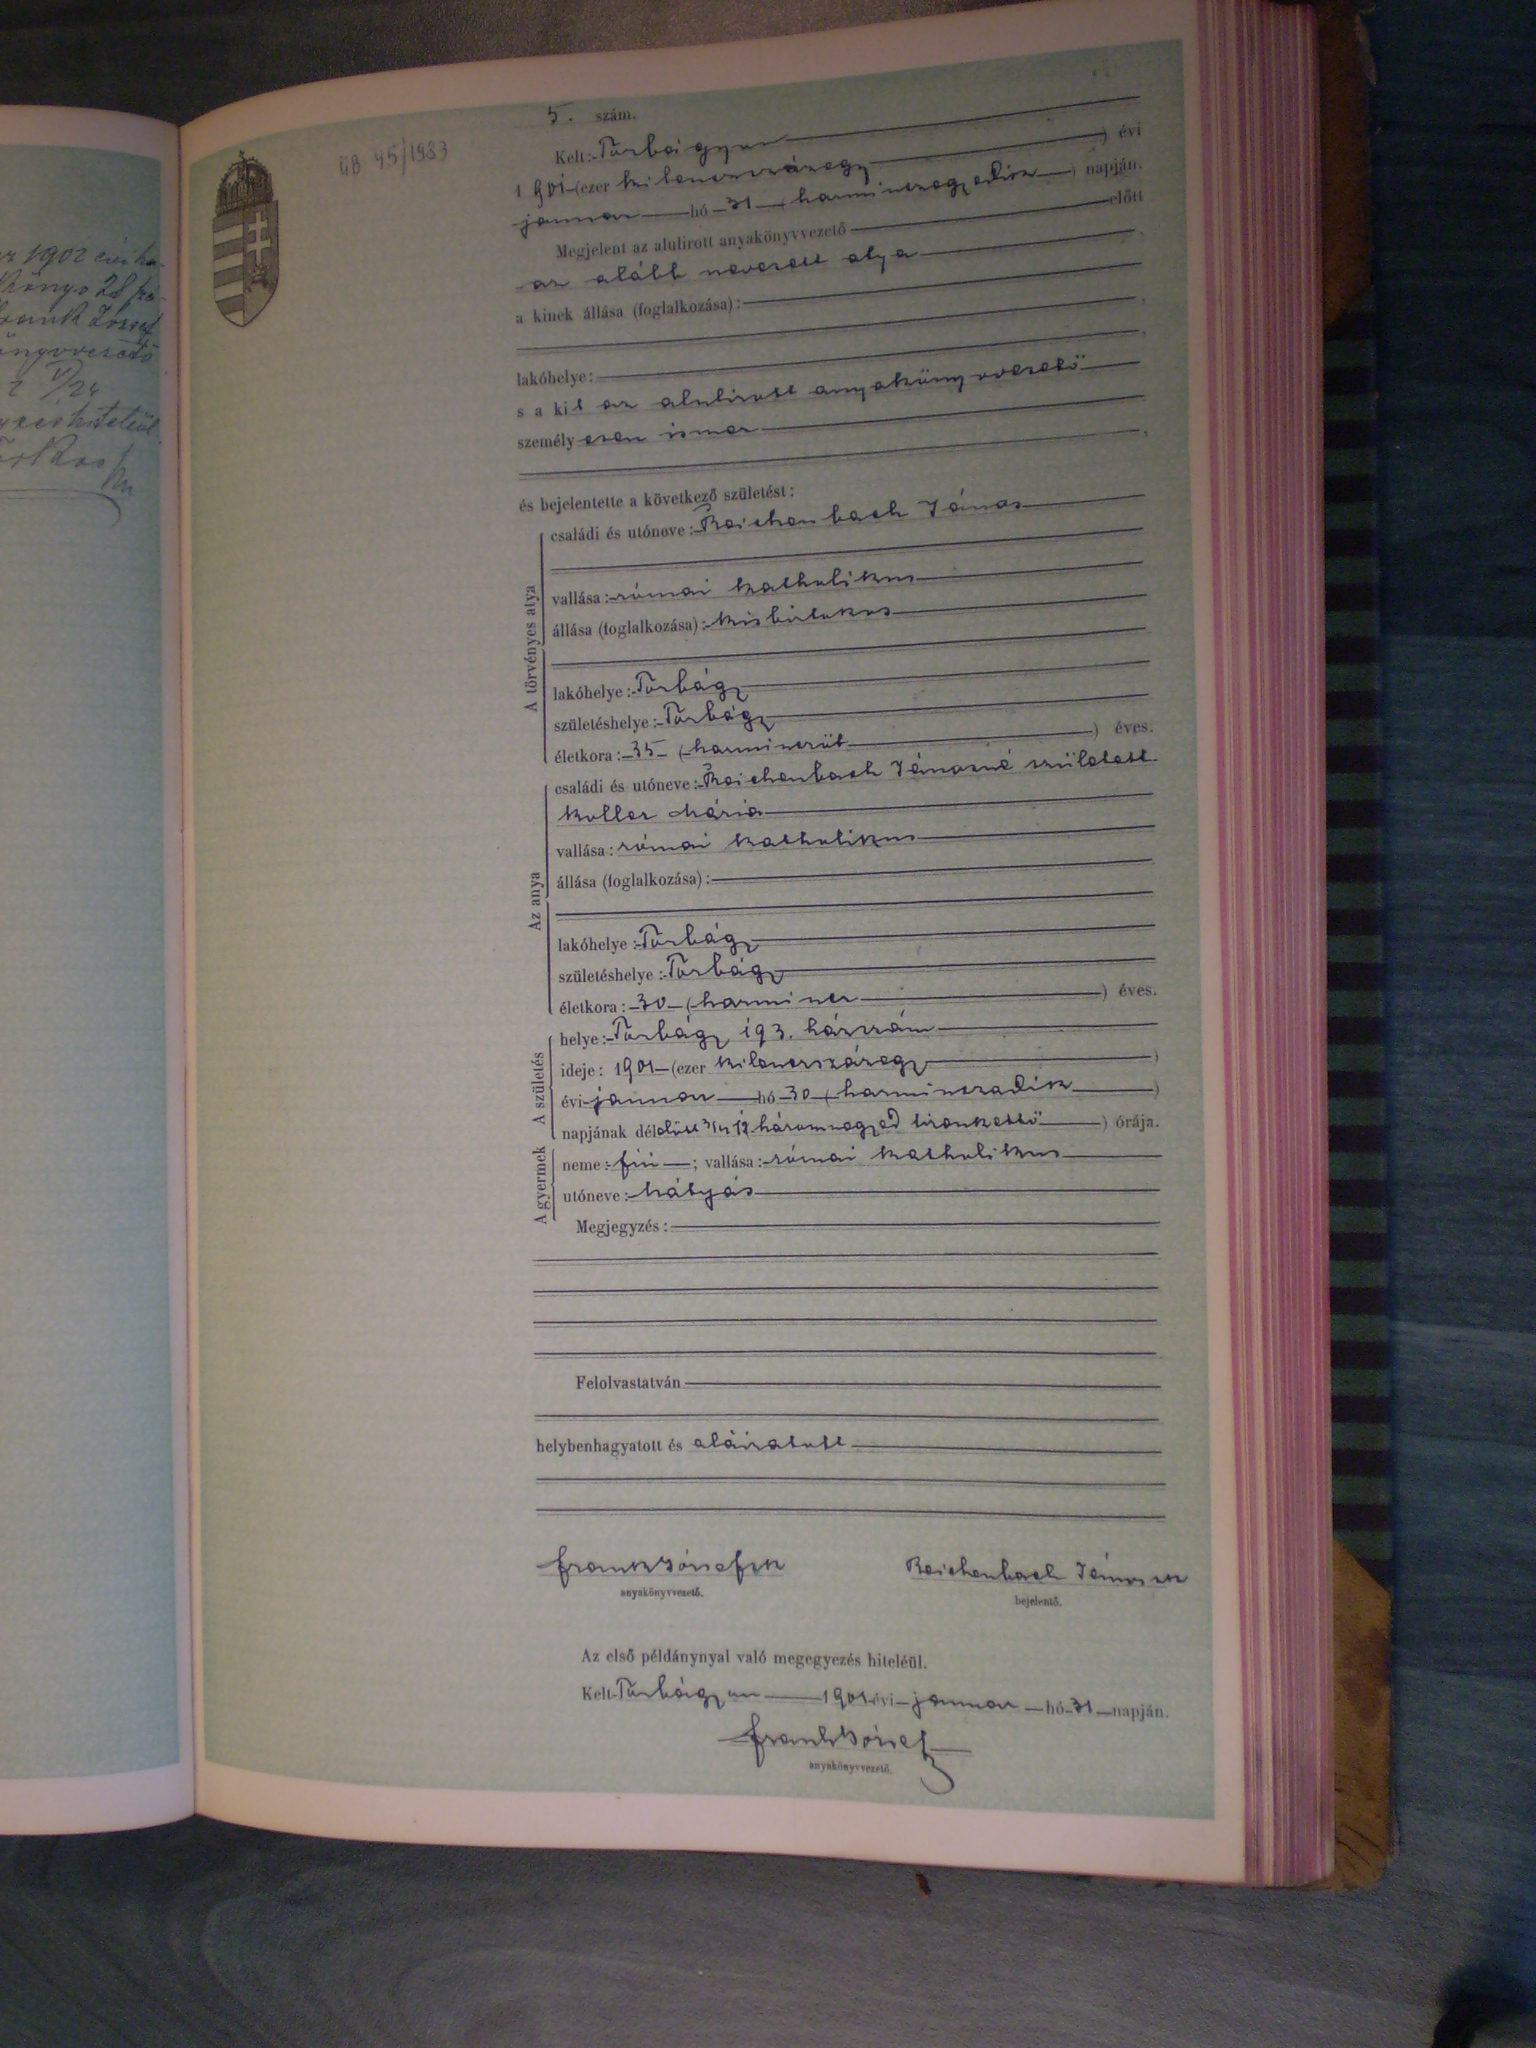 r 1902 évi
28
Frank József
2 VI/24
5. szám.
ÜB 45/1983
Kelt: Torbágyon ) évi
1901 (ezer kilenczszázegy
január hó 31 (harminczegyedik ) napján.
Megjelent az alulirott anyakönyvvezető előtt
az alább nevezett atya ,
a kinek állása (foglalkozása):
,
lakóhelye:
s a kit az alulirott anyakönyvvezető
személyesen ismer
,
és bejelentette a következő születést:
A törvényes atya
családi és utóneve: Reichenbach János
vallása: római katholikus
állása (foglalkozása): kisbirtokos
lakóhelye: Torbágy
születéshelye: Torbágy
életkora: 35 (harminczöt ) éves.
Az anya
családi és utóneve: Reichenbach Jánosné született
Koller Mária
vallása: római katholikus
állása (foglalkozása):
lakóhelye: Torbágy
születéshelye: Torbágy
életkora: 30 (harmincz ) éves.
A születés
helye: Torbágy 193. házszám
ideje: 1901 (ezer kilenczszázegy )
évi január hó 30 (harminczadik )
napjának délelőtt 3/4 12 háromnegyed tizenkettő ) órája.
A gyermek
neme: fiú ; vallása: római katholikus
utóneve: Mátyás
Megjegyzés:
Felolvastatván
helybenhagyatott és aláiratott
Frank József sk Reichenbach János sk
anyakönyvvezető. bejelentő.
Az első példánynyal való megegyezés hiteléül.
Kelt Torbágyon 1901 évi január hó 31 napján.
Frank József
anyakönyvvezető.